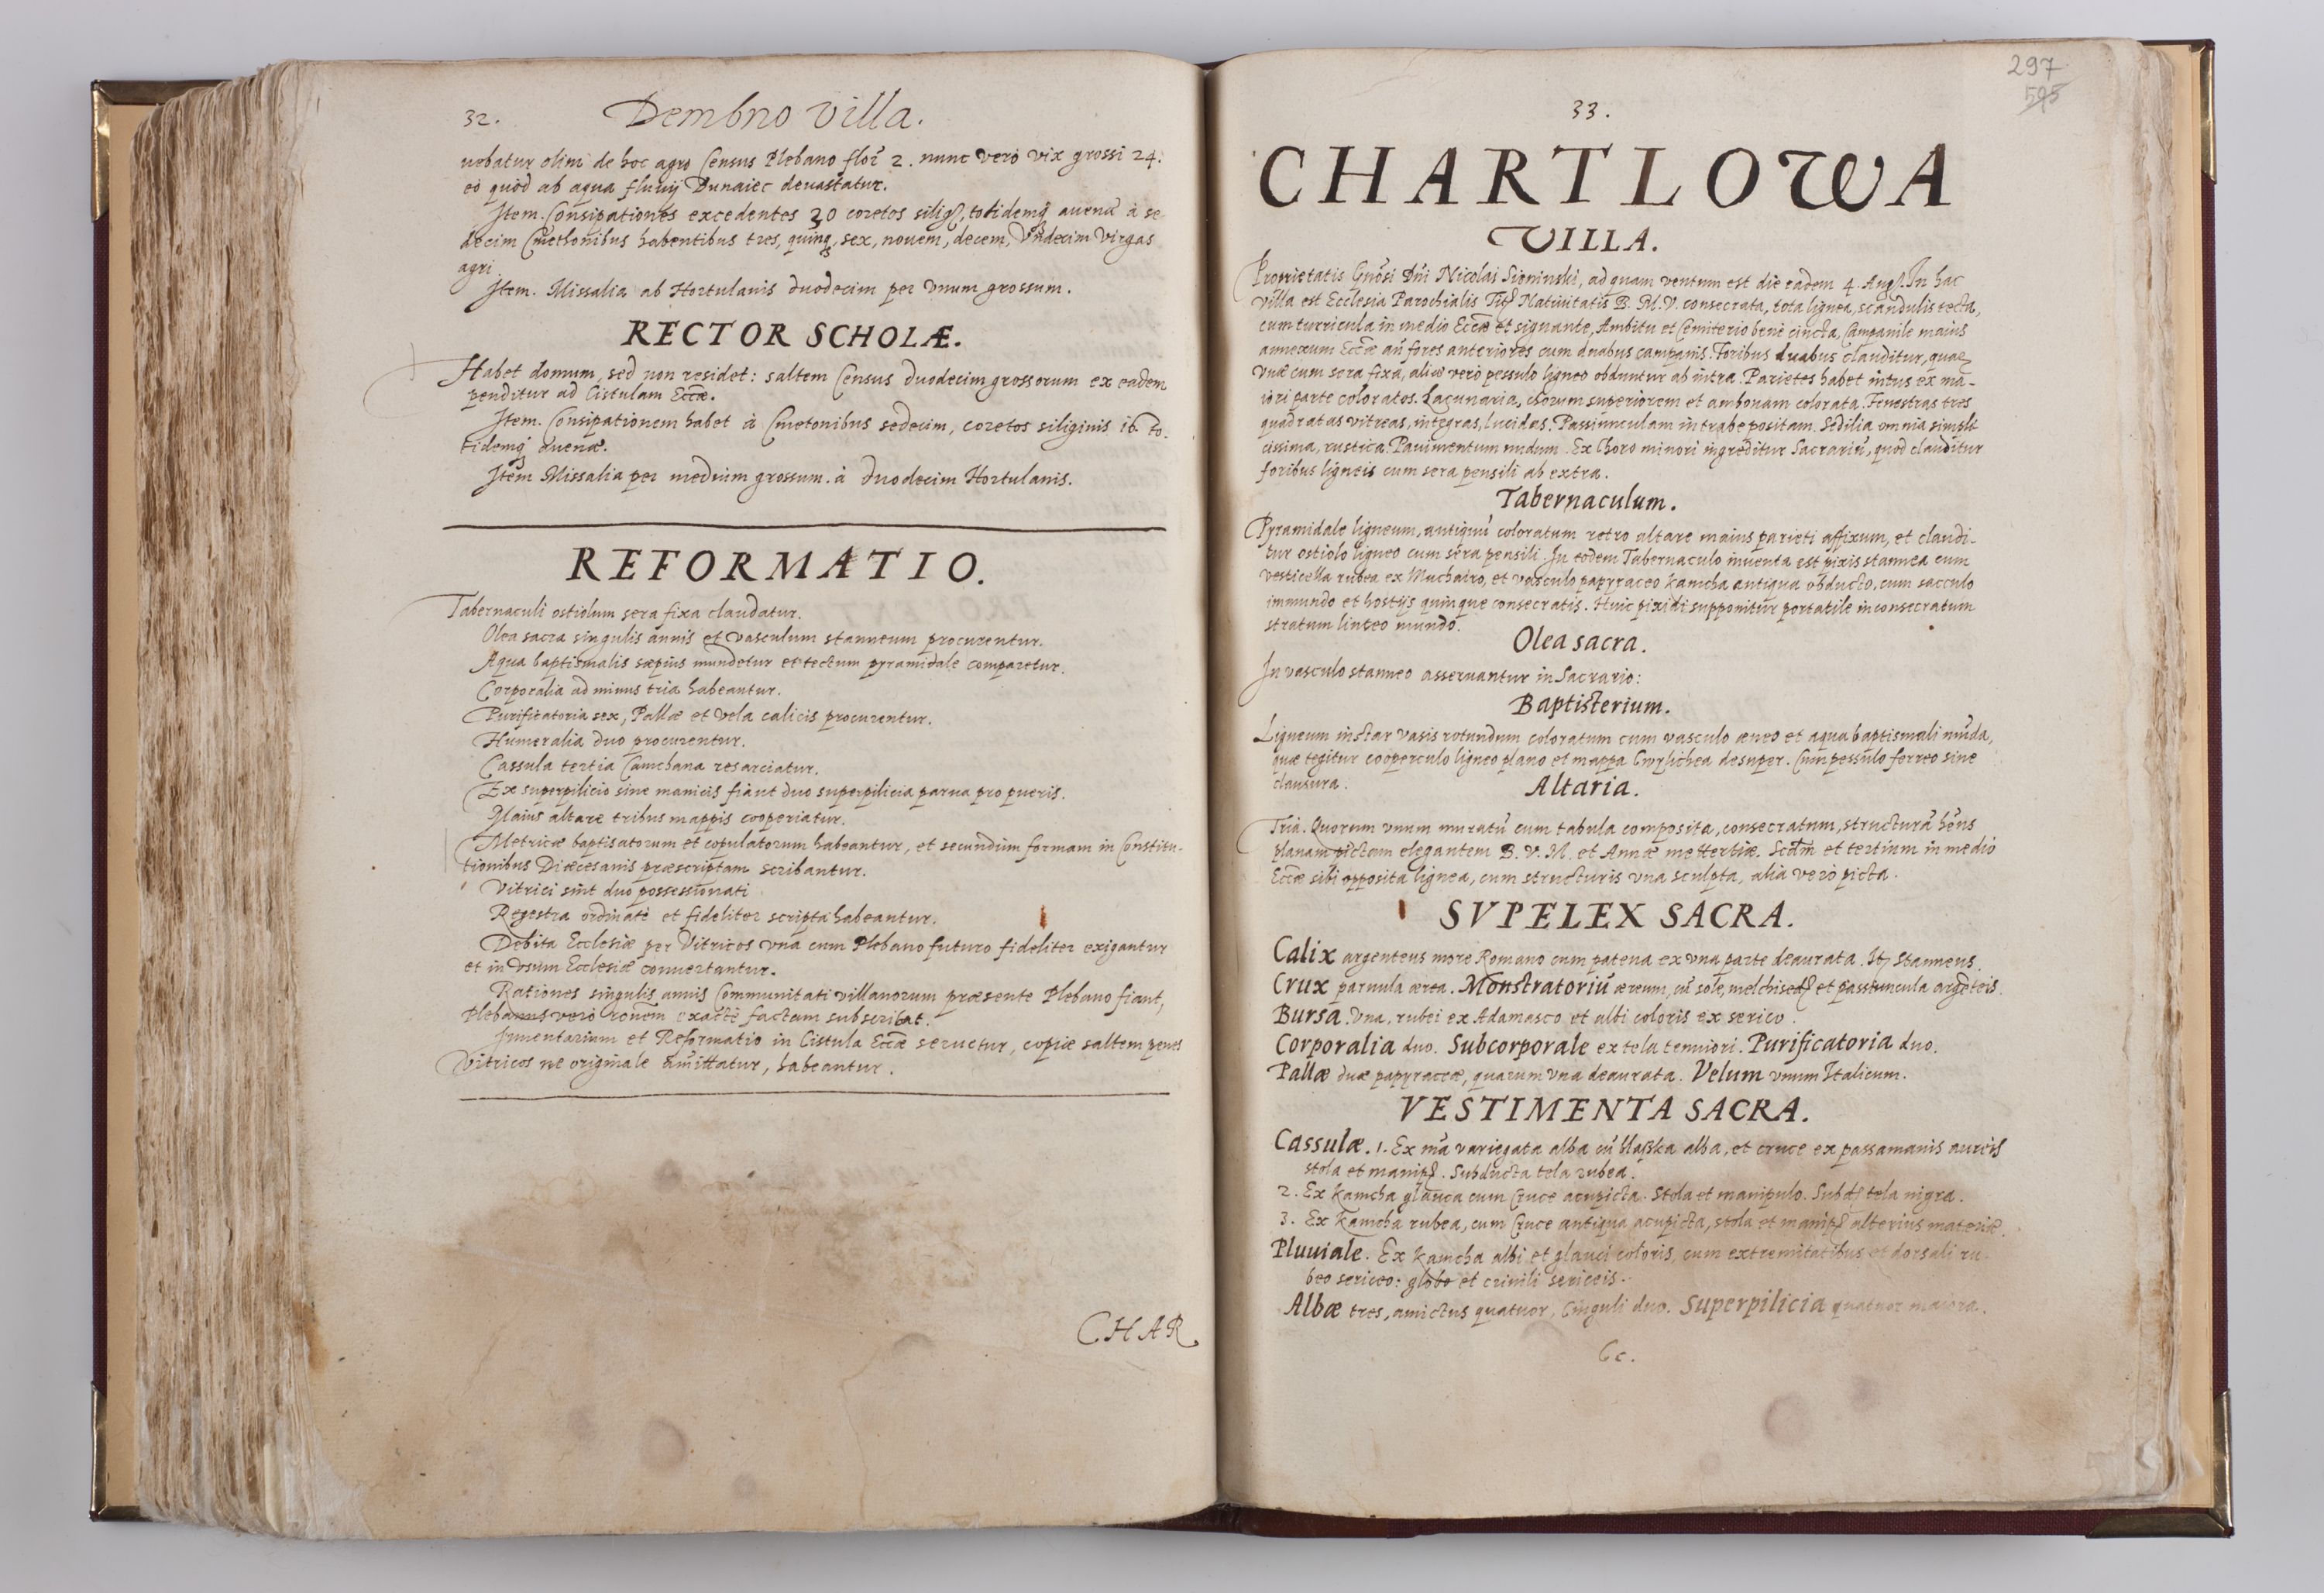 32. Dembno villa.
uebatur olim de hoc agro Census Plebano flor 2. nunc vero vix grossi 24.
eò quòd ab aqua fluuij Dunaiec deuastatur.
Item. Consipationes excedentes 30 coretos silig, totidemq auenæ à se
decim Cmethonibus habentibus tres, quinq, sex, nouem, decem, Vndecim virgas
agri.
Item. Missalia ab Hortulanis duodecim per vnum grossum.
RECTOR SCHOLÆ.
Habet domum, sed non residet: saltem Census duodecim grossorum ex eadem
penditur ad Cistulam Eccæ.
Item. Consipationem habet à Cmetonibus sedecim, coretos siliginis 16. to.
tidemq auenæ.
Item Missalia per medium grossum. à duodecim Hortulanis.
REFORMATIO.
Tabernaculi ostiolum sera fixa claudatur.
Olea sacra singulis annis et vasculum stanneum procurentur.
Aqua baptismalis sæpius mundetur et tectum pyramidale comparetur.
Corporalia ad minus tria habeantur.
Purificatoria sex, Pallæ et vela calicis procurentur.
Humeralia duo procurentur.
Cassula tertia Camchana resarciatur.
Ex superpilicio sine manicis fiant duo superpilicia parua pro pueris.
Maius altare tribus mappis cooperiatur.
Metricæ baptisatorum et copulatorum habeantur, et secundum formam in Constitu-
tionibus Diæcesanis præscriptam scribantur.
Vitrici sint duo possessionati
Regestra ordinatè et fideliter scripta habeantur.
Debita Ecclesiæ per Vitricos vna cum Plebano futuro fideliter exigantur
et in vsum Ecclesiæ conuertantur.
Rationes singulis annis Communitati villanorum præsente Plebano fiant,
Plebanus verò ronem exactè factam subscribat.
Inuentarium et Reformatio in Cistula Eccæ seruetur, copiæ saltem penes
Vitricos ne originale amittatur, habeantur.
CHAR
297
595
33.
CHARTLOWA
VILLA.
Proprietatis Gnosi Dni Nicolai Sieninski, ad quam ventum est die eadem 4. Aug. In hac
villa est Ecclesia Parochialis Tit Natiuitatis B. M. V. consecrata, tota lignea, scandulis tecta,
cum turricula in medio Eccæ et signante, Ambitu et Cemiterio benè cincta, Campanile maius
annexum Eccæ an fores anteriores cum duabus campanis. Foribus duabus clauditur, quæ
vnæ cum sera fixa, aliæ verò pessulo ligneo obduntur ab intra. Parietes habet intus ex ma-
iori parte coloratos. Lacunaria, chorum superiorem et ambonam colorata. Fenestras tres
quadratas vitreas, integras, lucidas. Passiunculam in trabe positam. Sedilia omnia simpli
cissima, rustica. Pauimentum nudum. Ex Choro minori ingreditur Sacrariu, quod clauditur
foribus ligneis cum sera pensili ab extra.
Tabernaculum.
Pyramidale ligneum, antiquu coloratum retro altare maius parieti affixum, et claudi-
tur ostiolo ligneo cum sera pensili. In eodem Tabernaculo inuenta est pixis stannea cum
vesticella rubea ex Muchairo, et vasculo papyraceo kamcha antiqua obducto, cum sacculo
immundo et hostijs quinque consecratis. Huic pixidi supponitur portatile inconsecratum
stratum linteo mundo.
Olea sacra.
In vasculo stanneo asseruantur in Sacrario:
Baptisterium.
Ligneum instar vasis rotundum coloratum cum vasculo æneo et aqua baptismali muda,
quæ tegitur cooperculo ligneo plano et mappa desuper. Cum pessulo ferreo sine
clausura.
Altaria.
Tria. Quorum vnum muratu cum tabula composita, consecratum, structura hens
planam pictam elegantem B. V. M. et Annæ mettertiæ. Scdm et tertium in medio
Eccæ sibi opposita lignea, cum structuris vna sculpta, alia verò picta.
SVPELEX SACRA.
Calix argenteus more Romano cum patena ex vna parte deaurata. It stanneus.
Crux paruula ærea. Monstratoriu æreum, cu sole, melchised et passiuncula argeteis.
Bursa. Vna, rubei ex Adamasco et albi coloris ex serico.
Corporalia duo. Subcorporale ex tela tenuiori. Purificatoria duo.
Pallæ duæ papyraceæ, quarum vna deaurata. Velum vnum Italicum.
VESTIMENTA SACRA.
Cassulæ. 1. Ex ma variegata alba cu alba, et cruce ex passamanis aureis
stola et manip. Subducta tela rubea.
2. Ex kamcha glauca cum Cruce acupicta. Stola et manipulo. Subd tela nigra.
3. Ex Kamcha rubea, cum Cruce antiqua acupicta, stola et manip alterius materiæ.
Pluuiale. Ex kamcha albi et glauci coloris, cum extremitatibus et dorsali ru-
beo sericeo: globo et crinili sericeis.
Albæ tres, amictus quatuor, Cinguli duo. Superpilicia quatuor maiora.
Cc.